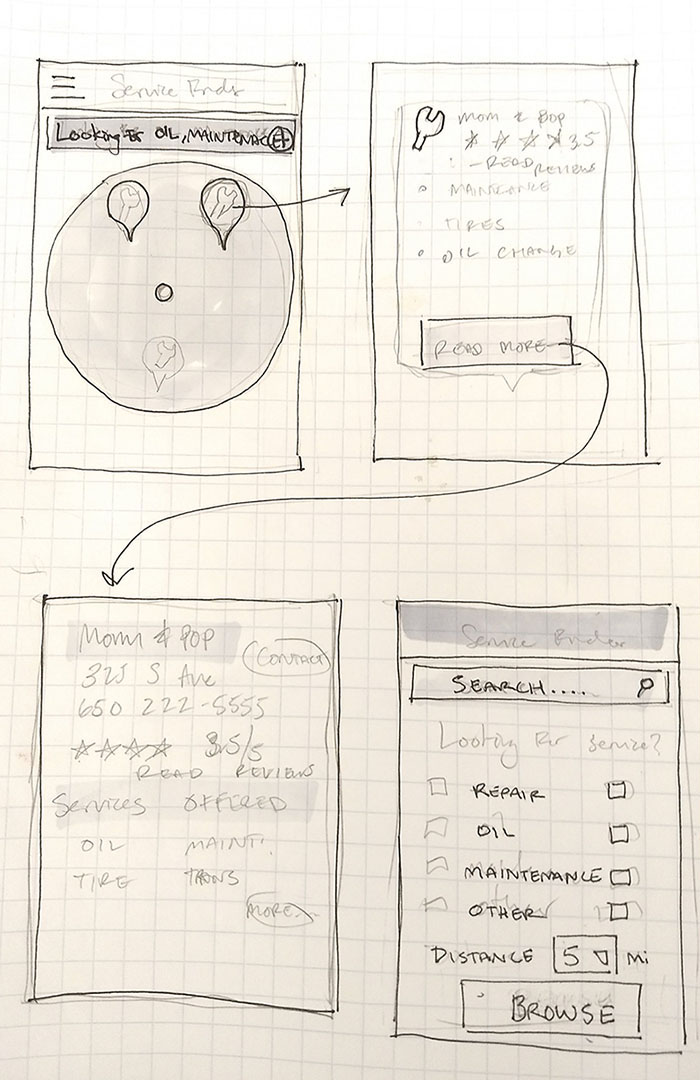 Service Finder
Looking for OIL, MAINTENANCE
MOM & POP
3.5
- READ REVIEWS
MAINTENANCE
TIRES
OIL CHANGE
READ MORE
Mom & POP
CONTACT
325 S Ave
650 222-5555
3.5/5
READ REVIEWS
Services OFFERED
OIL MAINT.
TIRE TRANS
MORE
Service Finder
SEARCH....
Looking For Service?
REPAIR
OIL
MAINTENANCE
OTHER
DISTANCE 5 Mi
BROWSE